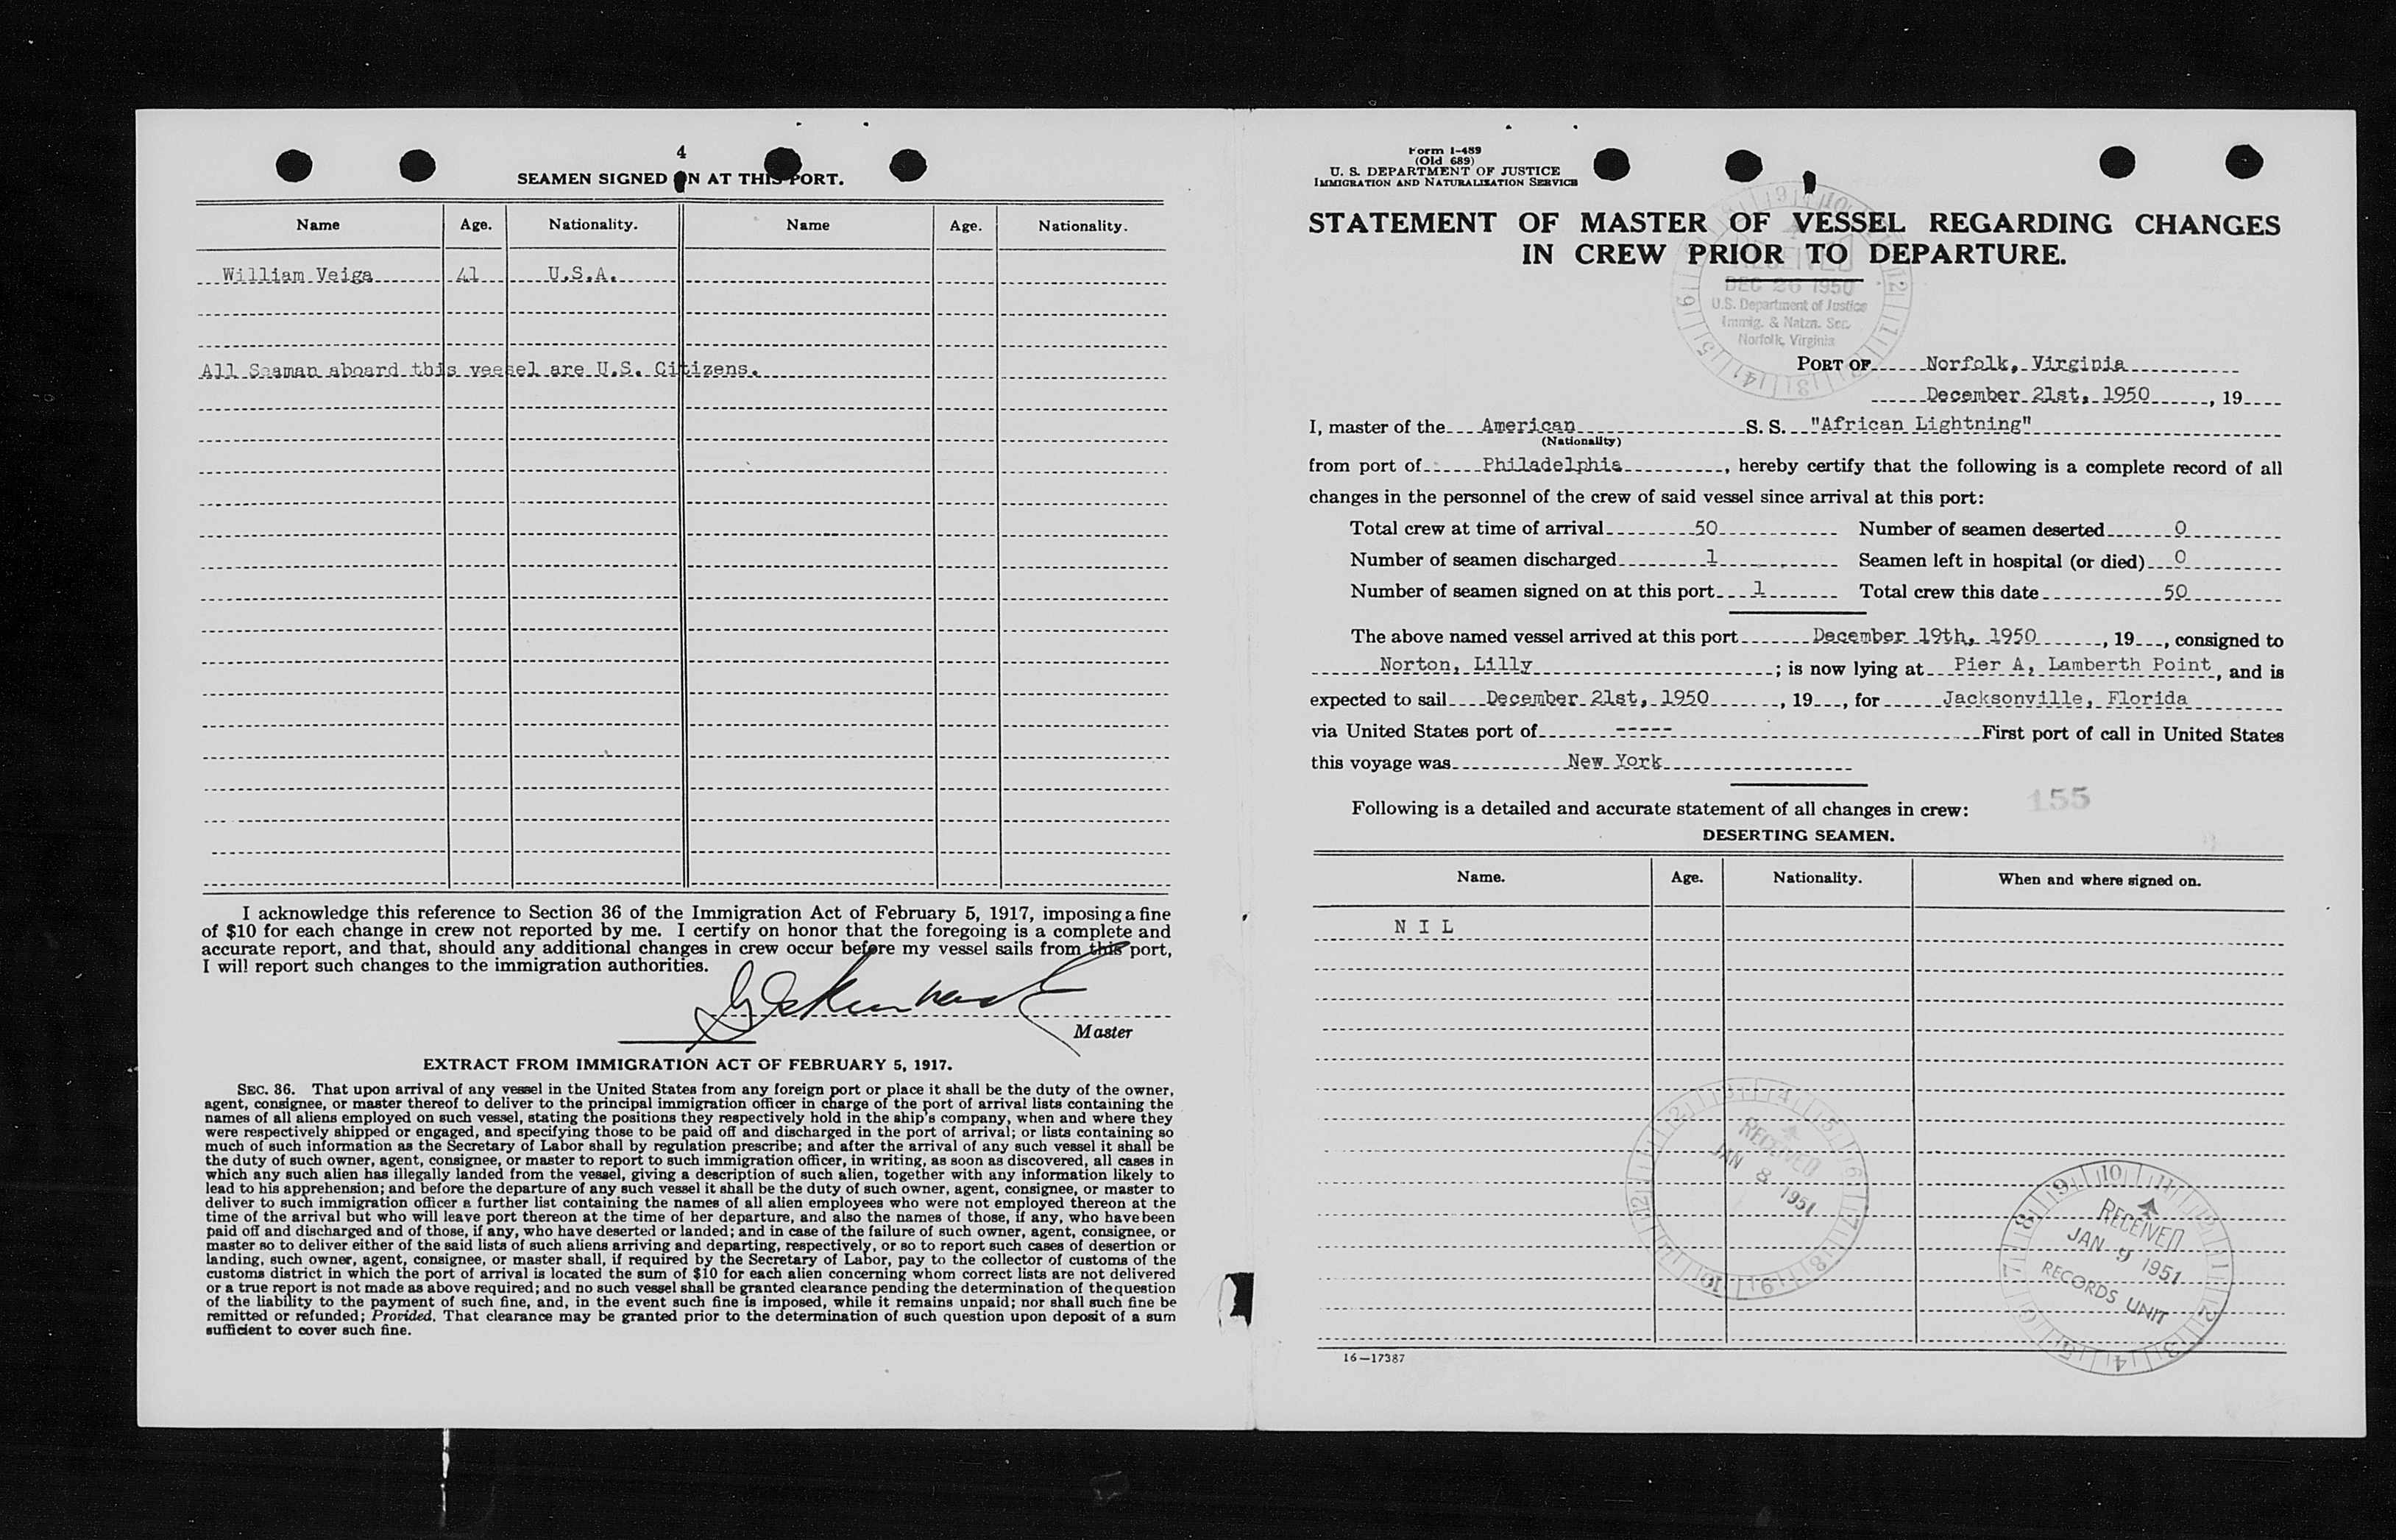 4
SEAMEN SIGNED ON AT THIS PORT.
Name Age. Nationality. Name Age. Nationality.
William Veiga 41 U.S.A.
All Seaman aboard this vessel are U.S. Citizens.
I acknowledge this reference to Section 36 of the Immigration Act of February 5, 1917, imposing a fine
of $10 for each change in crew not reported by me. I certify on honor that the foregoing is a complete and
accurate report, and that, should any additional changes in crew occur before my vessel sails from this port,
I will report such changes to the immigration authorities.
Master
EXTRACT FROM IMMIGRATION ACT OF FEBRUARY 5, 1917.
SEC. 36. That upon arrival of any vessel in the United States from any foreign port or place it shall be the duty of the owner,
agent, consignee, or master thereof to deliver to the principal immigration officer in charge of the port of arrival lists containing the
names of all aliens employed on such vessel, stating the positions they respectively hold in the ship's company, when and where they
were respectively shipped or engaged, and specifying those to be paid off and discharged in the port of arrival; or lists containing so
much of such information as the Secretary of Labor shall by regulation prescribe; and after the arrival of any such vessel it shall be
the duty of such owner, agent, consignee, or master to report to such immigration officer, in writing, as soon as discovered, all cases in
which any such alien has illegally landed from the vessel, giving a description of such alien, together with any information likely to
lead to his apprehension; and before the departure of any such vessel it shall be the duty of such owner, agent, consignee, or master to
deliver to such immigration officer a further list containing the names of all alien employees who were not employed thereon at the
time of the arrival but who will leave port thereon at the time of her departure, and also the names of those, if any, who have been
paid off and discharged and of those, if any, who have deserted or landed; and in case of the failure of such owner, agent, consignee, or
master so to deliver either of the said lists of such aliens arriving and departing, respectively, or so to report such cases of desertion or
landing, such owner, agent, consignee, or master shall, if required by the Secretary of Labor, pay to the collector of customs of the
customs district in which the port of arrival is located the sum of $10 for each alien concerning whom correct lists are not delivered
or a true report is not made as above required; and no such vessel shall be granted clearance pending the determination of the question
of the liability to the payment of such fine, and, in the event such fine is imposed, while it remains unpaid; nor shall such fine be
remitted or refunded; Provided, That clearance may be granted prior to the determination of such question upon deposit of a sum
sufficient to cover such fine.
Form I-489
(Old 689)
U. S. DEPARTMENT OF JUSTICE
IMMIGRATION AND NATURALIZATION SERVICE
STATEMENT OF MASTER OF VESSEL REGARDING CHANGES
IN CREW PRIOR TO DEPARTURE.
RECEIVED
DEC 26 1950
U.S. Department of Justice
Immig. & Natzn. Ser.
Norfolk, Virginia
PORT OF Norfolk, Virginia
December 21st, 1950, 19
I, master of the American S. S. "African Lightning"
(Nationality)
from port of Philadelphia, hereby certify that the following is a complete record of all
changes in the personnel of the crew of said vessel since arrival at this port:
Total crew at time of arrival 50 Number of seamen deserted 0
Number of seamen discharged 1 Seamen left in hospital (or died) 0
Number of seamen signed on at this port 1 Total crew this date 50
The above named vessel arrived at this port December 19th, 1950, 19, consigned to
Norton, Lilly; is now lying at Pier A, Lamberth Point, and is
expected to sail December 21st, 1950, 19, for Jacksonville, Florida
via United States port of ----- First port of call in United States
this voyage was New York
155
Following is a detailed and accurate statement of all changes in crew:
DESERTING SEAMEN.
Name. Age. Nationality. When and where signed on.
N I L
RECEIVED
JAN 8 1951
RECEIVED
JAN 9 1951
RECORDS UNIT
16—17387